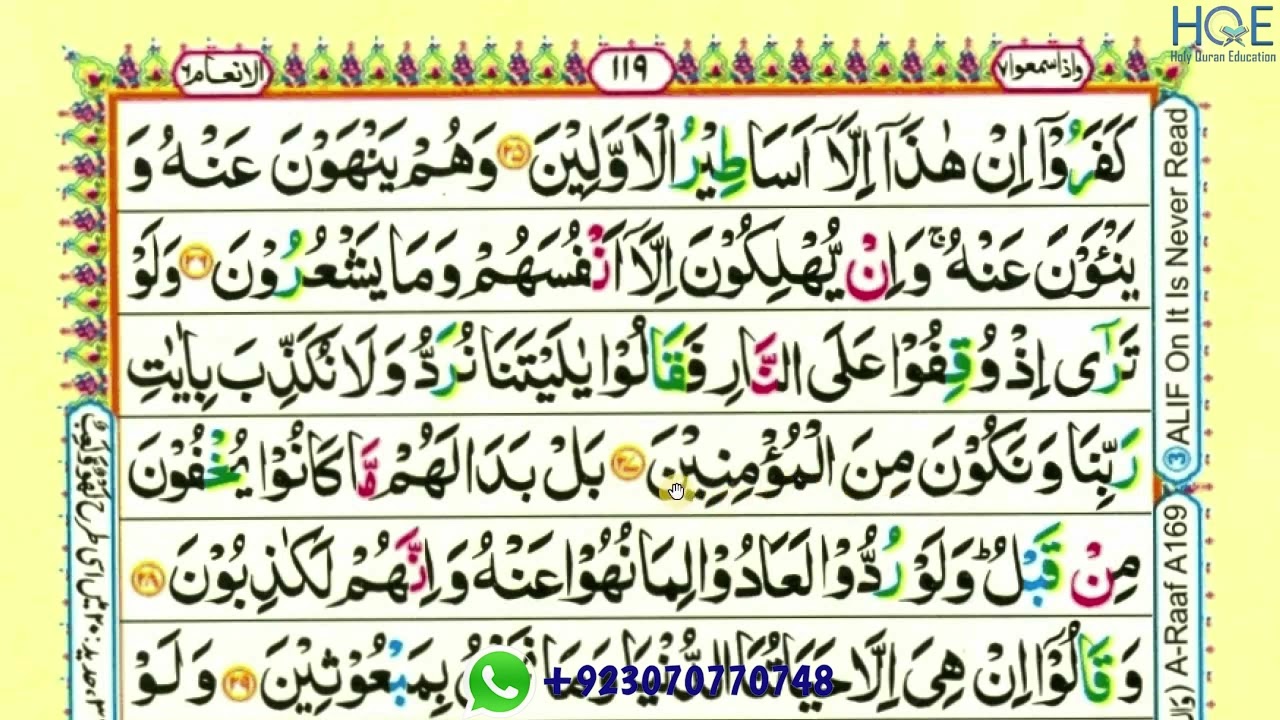 HQE
Holy Quran Education
الانعام ٦
١١٩
واذاسمعوا ٧
كَفَرُوْۤا اِنْ هٰذَاۤ اِلَّاۤ اَسَاطِيْرُ الْاَوَّلِيْنَ ﴿۲۵﴾ وَهُمْ يَنْهَوْنَ عَنْهُ وَ
يَنْـَٔوْنَ عَنْهُ ۚ وَاِنْ يُّهْلِكُوْنَ اِلَّاۤ اَنْفُسَهُمْ وَمَا يَشْعُرُوْنَ ﴿۲۶﴾ وَلَوْ
تَرٰٓى اِذْ وُقِفُوْا عَلَى النَّارِ فَقَالُوْا يٰلَيْتَنَا نُرَدُّ وَلَا نُكَذِّبَ بِاٰيٰتِ
رَبِّنَا وَنَكُوْنَ مِنَ الْمُؤْمِنِيْنَ ﴿۲۷﴾ بَلْ بَدَا لَهُمْ مَّا كَانُوْا يُخْفُوْنَ
مِنْ قَبْلُ ؕ وَلَوْ رُدُّوْا لَعَادُوْا لِمَا نُهُوْا عَنْهُ وَاِنَّهُمْ لَكٰذِبُوْنَ ﴿۲۸﴾
وَقَالُوْۤا اِنْ هِىَ اِلَّا حَيَاتُنَا الدُّنْيَا وَمَا بِمَبْعُوْثِيْنَ ﴿۲۹﴾ وَلَوْ
+923070770748
③ ALIF On It Is Never Read
A-Raaf A169